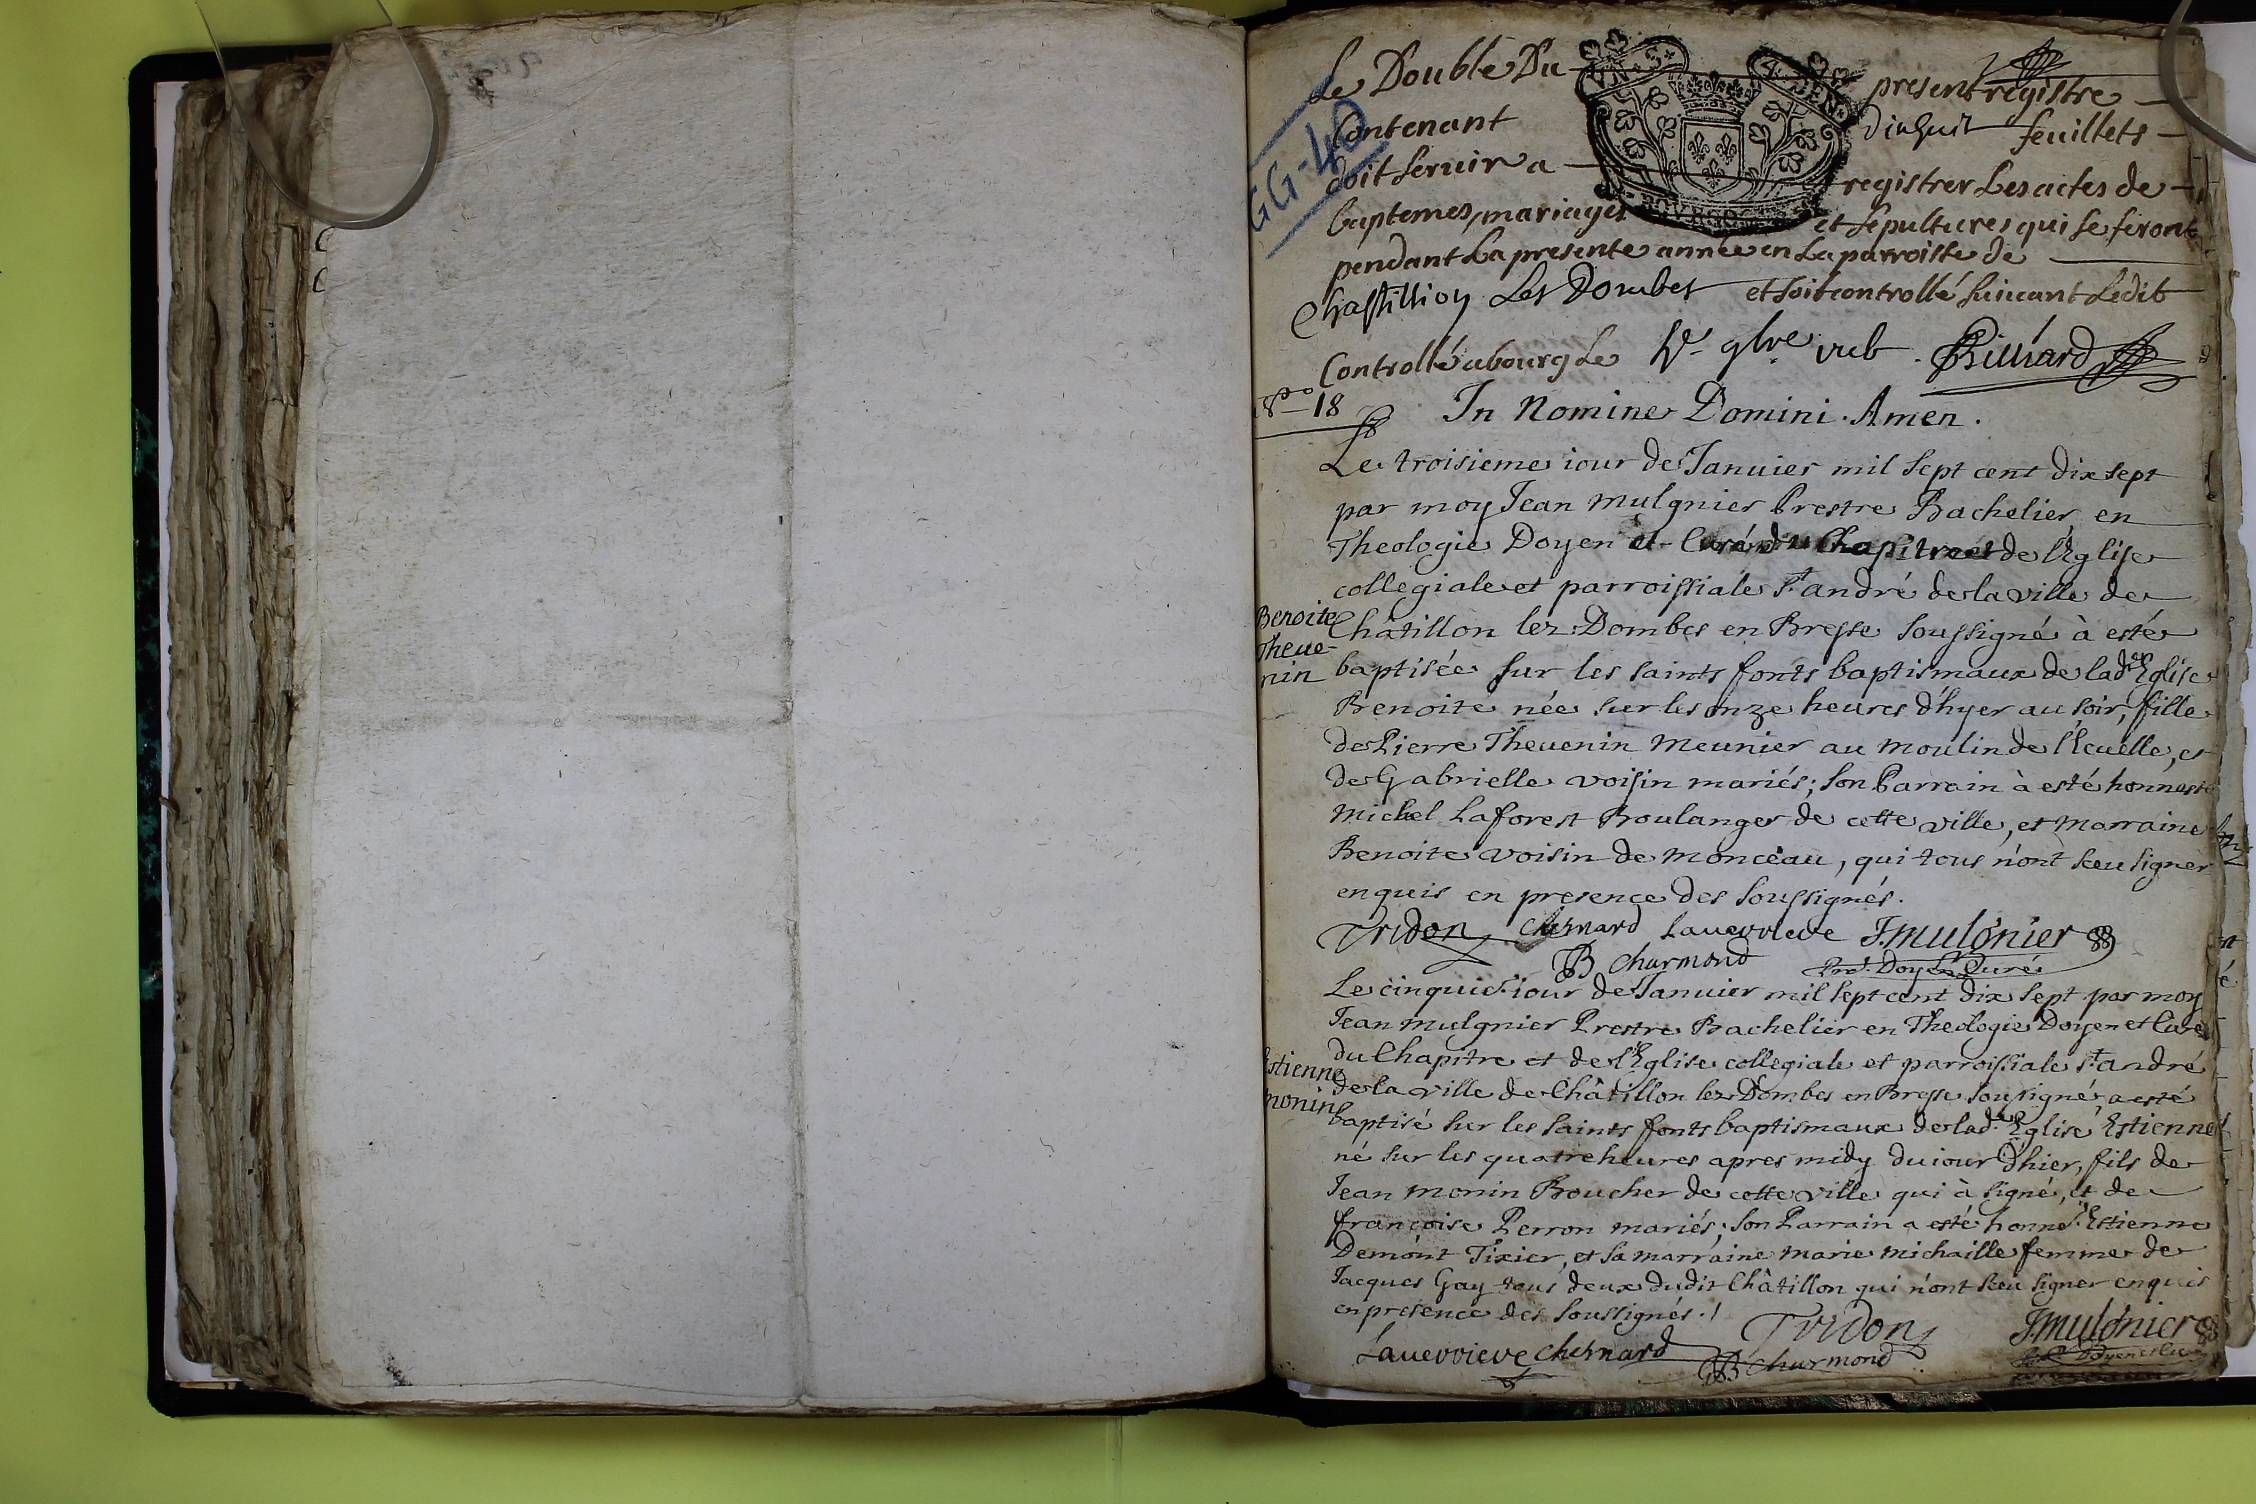 Le Double Du present registre
GG-40
contenant dixhuit feuillets
doit servir a registrer Les actes de
baptemes, mariages et sepultures qui se feront
pendant La presente année en La parroisse de
Chastillion Les Dombes et soit controllé suivant Ledit
Controllé a bourg Le Billiard
18
In Nomine Domini. Amen.
Le troisieme iour de Ianuier mil sept cent dix sept
par moy Iean mulgnier Prestre Bachelier en
Theologie Doyen et Curé du Chapitre et de l'Eglise
collegiale et parroissiale st. andré de la ville de
Benoite
Theue-
nin
Châtillon lez Dombes en Bresse soussigné à esté
baptisée sur les saints fonts baptismaux de lad. Eglise
Benoite née sur les onze heures d'hyer au soir, fille
de Pierre Theuenin Meunier au moulin de l'Ecuelle, et
de Gabrielle voisin mariés; son Parrain à esté honneste
Michel Laforest Boulanger de cette ville, et marraine
Benoite voisin de monceau, qui tous n'ont sceu signer
enquis en presence des soussignés.
Tridon Chesnard Lauerrieve J. mulgnier
JB Charmond Pre. Doyen Curé
Le cinquie. iour de Ianuier mil sept cent dix sept par moy
Iean mulgnier Prestre Bachelier en Theologie Doyen et Curé
du Chapitre et de l'Eglise collegiale et parroissiale st. andré
Estienne
monin
de la ville de Châtillon lez Dombes en Bresse soussigné a esté
baptisé sur les saints fonts baptismaux de lad. Eglise Estienne
né sur les quatre heures apres midy du iour d'hier, fils de
Iean monin Boucher de cette ville qui à signé, et de
françoise Perron mariés; son Parrain a esté honne. Estienne
Demont Tixier, et sa marraine marie michaille femme de
Iacques Gay tous deux dudit Châtillon qui n'ont sceu signer enquis
en presence des soussignés.
Tridon J. mulgnier
Lauerrieve Chesnard JB Charmond